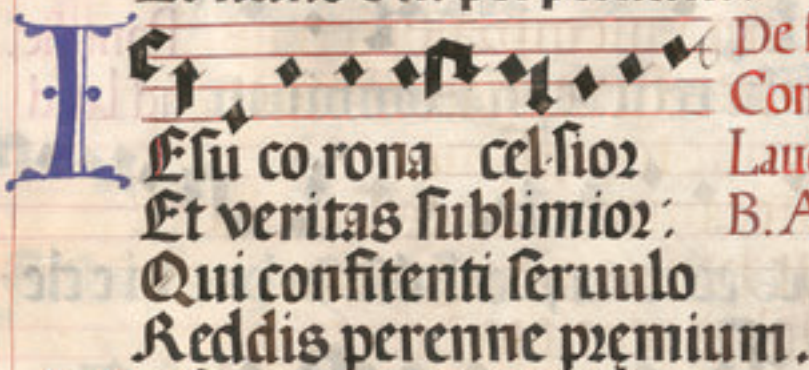 IEſu co rona celſior
Et veritas ſublimior:
Qui confitenti ſeruulo
Reddis perenne pręmium.
De
Con
Lau
B. A